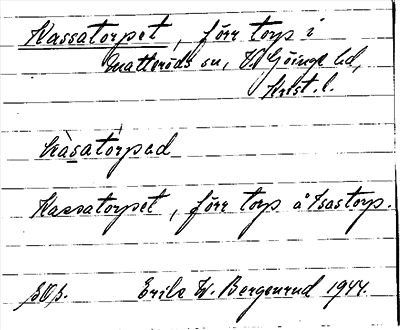 Kassatorpet, förr torp i
Matteröds sn, V. Göinge hd,
Krist. l.
kràsatòrpəd
Kassatorpet, förr torp å Åsastorp.
Erik W. Bergenrud 1944.